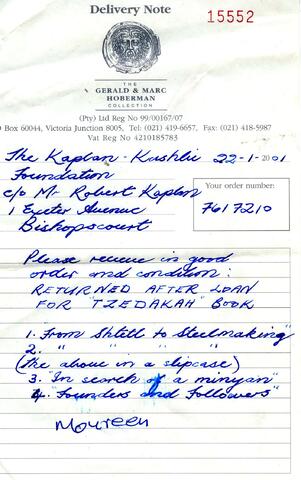 Delivery Note
15552
THE
GERALD & MARC
HOBERMAN
COLLECTION
(Pty) Ltd Reg No 99/00167/07
O Box 60044, Victoria Junction 8005, Tel: (021) 419-6657, Fax: (021) 418-5987
Vat Reg No 4210185783
The Kaplan-Kushlic 22-1-2001
Foundation
c/o Mr Robert Kaplan
1 Exeter Avenue
Bishopscourt
Your order number:
7617210
Please receive in good
order and condition:
RETURNED AFTER LOAN
FOR "TZEDAKAH" BOOK
1. From Shtetl to Steelmaking"
2. " " " "
(The above in a slipcase)
3. "In search of a minyan"
4. "Founders and Followers"
Moureen